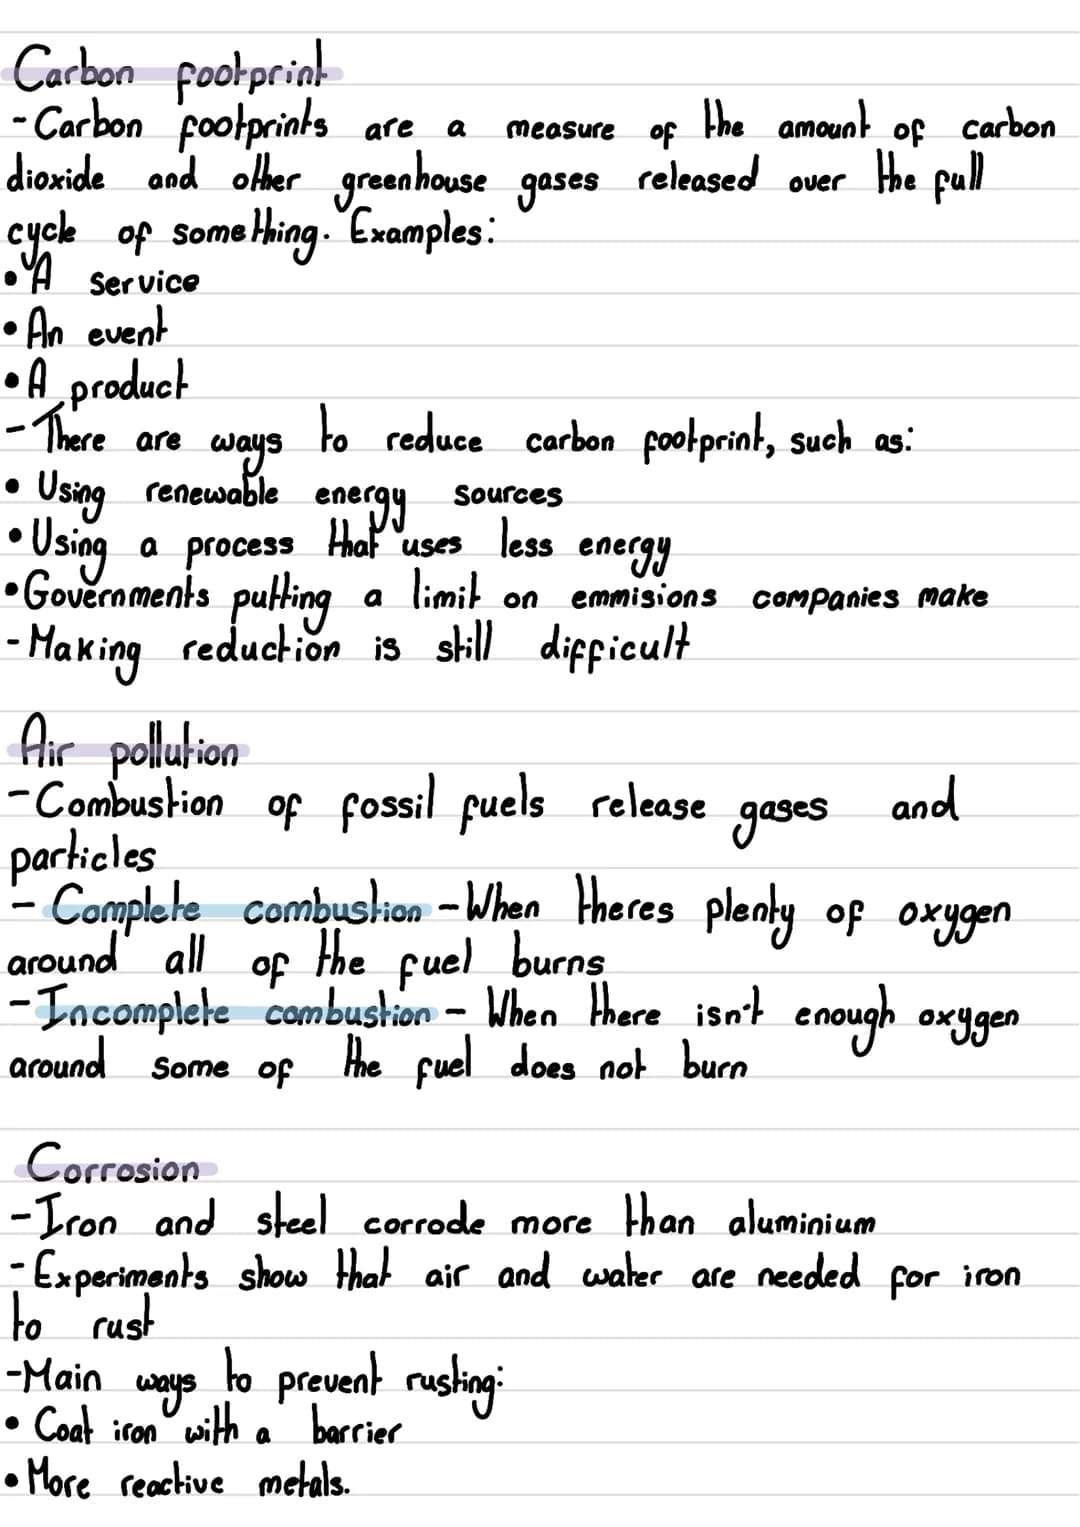 Carbon footprint
-Carbon footprints are a measure of the amount of carbon
dioxide and other greenhouse gases released over the full
cycle of something. Examples:
•A service
•An event
•A product
-There are ways to reduce carbon footprint, such as:
• Using renewable energy sources
•Using a process that uses less energy
•Governments putting a limit on emmisions companies make
-Making reduction is still difficult
Air pollution
-Combustion of fossil fuels release gases and
particles
- Complete combustion -When theres plenty of oxygen
around all of the fuel burns
-Incomplete combustion - When there isn't enough oxygen
around some of the fuel does not burn
Corrosion
-Iron and steel corrode more than aluminium
-Experiments show that air and water are needed for iron
to rust
-Main ways to prevent rusting:
• Coat iron with a barrier
•More reactive metals.